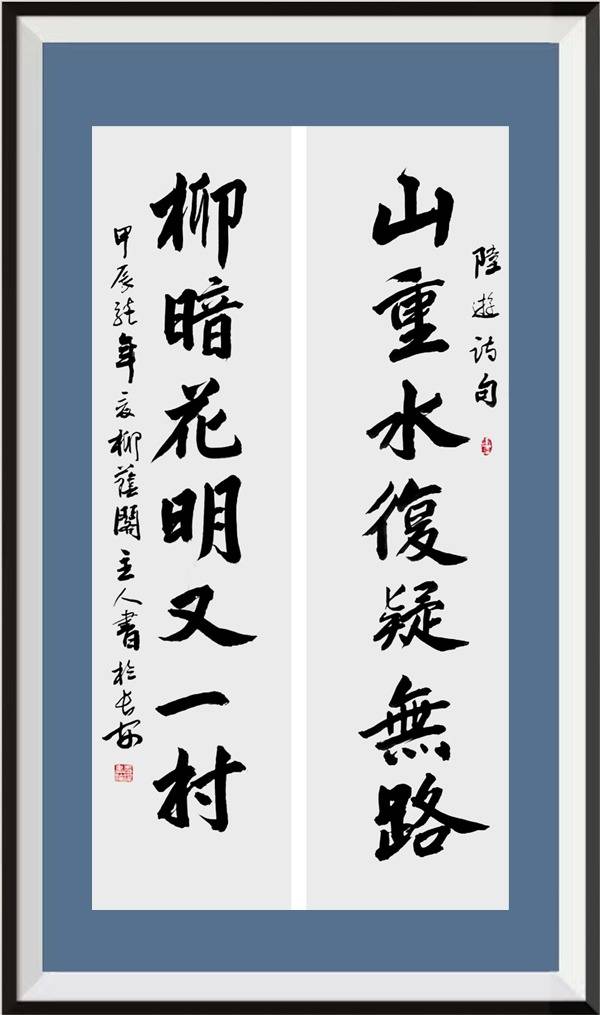 陸游詩句
山重水復疑無路
柳暗花明又一村
甲辰龍年夏柳蔭閣主人書於長安